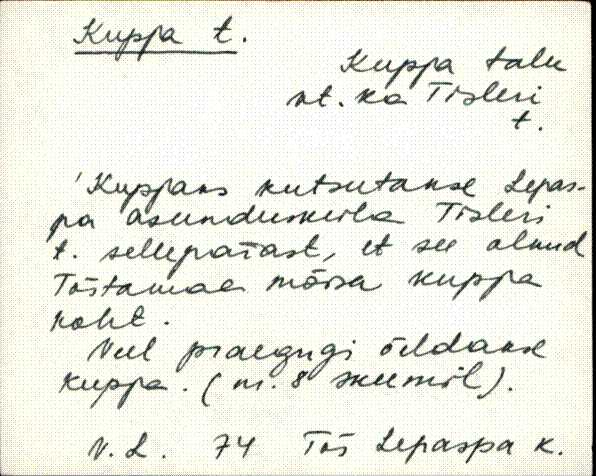 Kuppa t.
Kuppa talu
nt. ka Tisleri
t.
'Kuppaks kutsutakse Lepas-
pa asundusküla Tisleri
t. sellepärast, et see olnud
Tõstamaa mõisa kuppa
koht.
Veel praegugi öeldakse
kuppa. (nr. 8 skeemil).
V. L. 74 Tõs Lepaspa k.